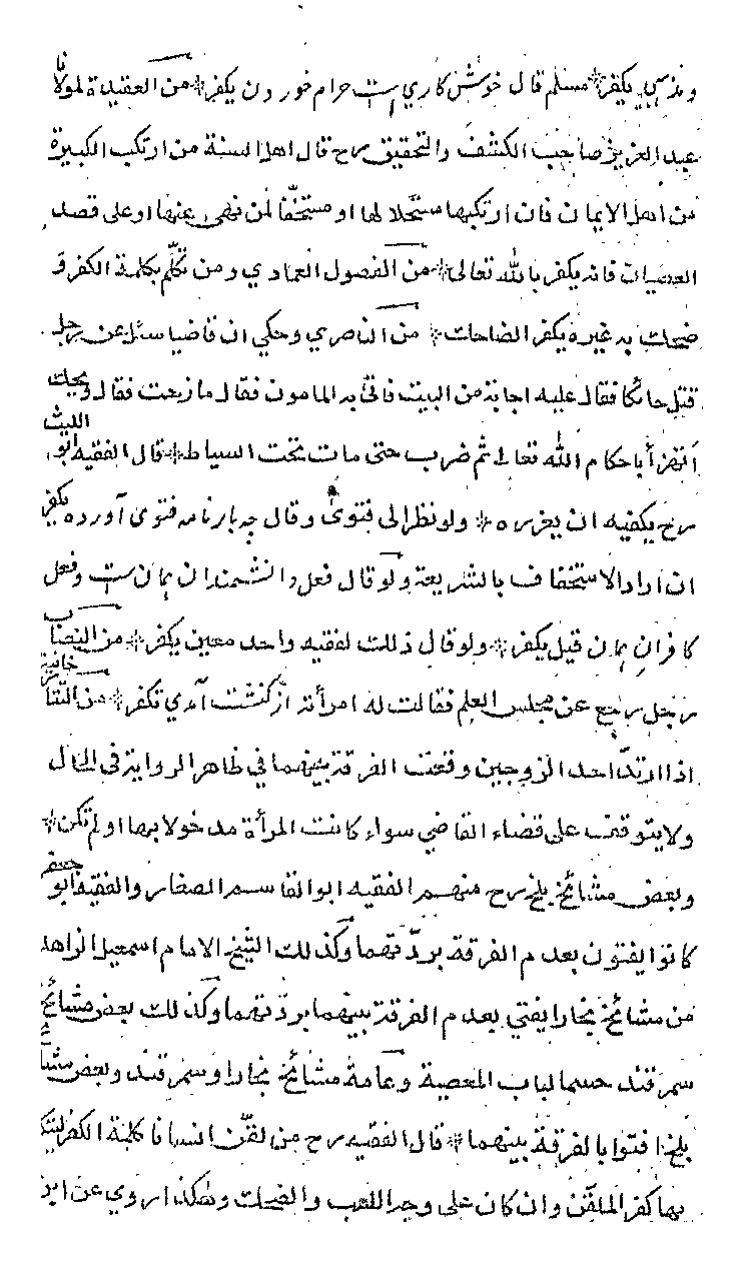 و نترسي يكفر * مسلم قال خوش كاري است حرام خوردن يكفر * من العقيدة لمولانا
عبد العزيز صاحب الكشف والتحقيق رح قال اهل السنة من ارتكب الكبيرة
من اهل الايمان فان ارتكبها مستحلا لها او مستخفّا لمن نهى عنها او على قصد
العصيان فانه يكفر بالله تعالى * من الفصول العمادي و من تكلّم بكلمة الكفر و
ضحك به غيره يكفر الضاحك * من الناصري وحكي ان قاضيا سئل عن رجل
قتل حائكا فقال عليه اجانة من البيت فاتى به المامون فقال ما زعمت فقال ويحك
اتهزأ باحكام الله تعالى ثم ضرب حتى مات تحت السياط * قال الفقيه ابو الليث
رح يكفيه ان يعزره * ولو نظر الى فتوى وقال چه بارنامه فتوى آورده يكفر
ان اراد الاستخفاف بالشريعة ولو قال فعل دانشمندان همان ست وفعل
كافران همان قيل يكفر * ولو قال ذلك لفقيه واحد معين يكفر * من النصاب
رجل رجع عن مجلس العلم فقالت له امرأته از كنشت آمدي تكفر * من التتارخانية
اذا ارتدّ احد الزوجين وقعت الفرقة بينهما في ظاهر الرواية في الحال
ولا يتوقف على قضاء القاضي سواء كانت المرأة مدخولا بها او لم تكن *
وبعض مشائخ بلخ رح منهم الفقيه ابو القاسم الصفار والفقيه ابو جعفر
كانوا يفتون بعدم الفرقة بردّتهما وكذلك الشيخ الامام اسمعيل الزاهد
من مشائخ بخارا يفتي بعدم الفرقة بينهما بردّتهما وكذلك بعض مشائخ
سمرقند حسما لباب المعصية وعامة مشائخ بخارا وسمرقند وبعض مشائخ
بلخ افتوا بالفرقة بينهما * قال الفقيه رح من لقّن انسانا كلمة الكفر ليتكلم
بها كفر الملقّن وان كان على وجه اللعب والضحك وهكذا روي عن ابي